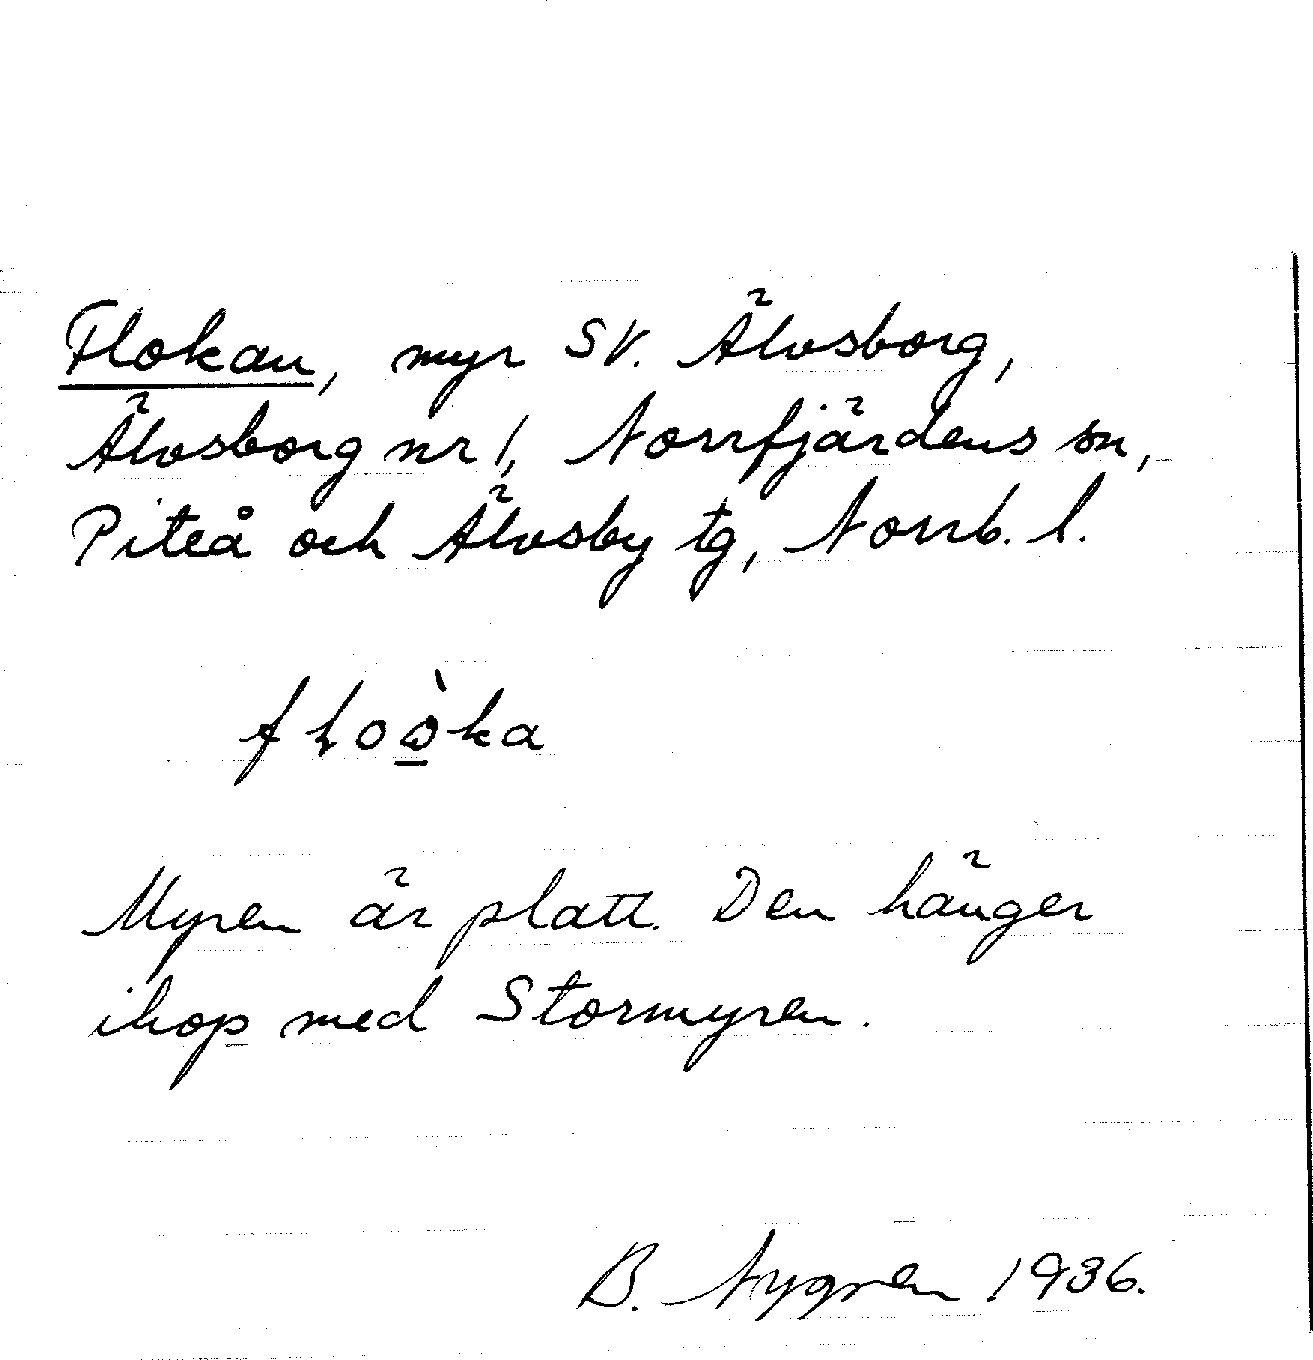 Flokan, myr SV. Älvsborg,
Älvsborg nr 1, Norrfjärdens sn,
Piteå och Älvsby tg, Norrb. l.
Myren är platt. Den hänger
ihop med Stormyren.
B. Nygren 1936.